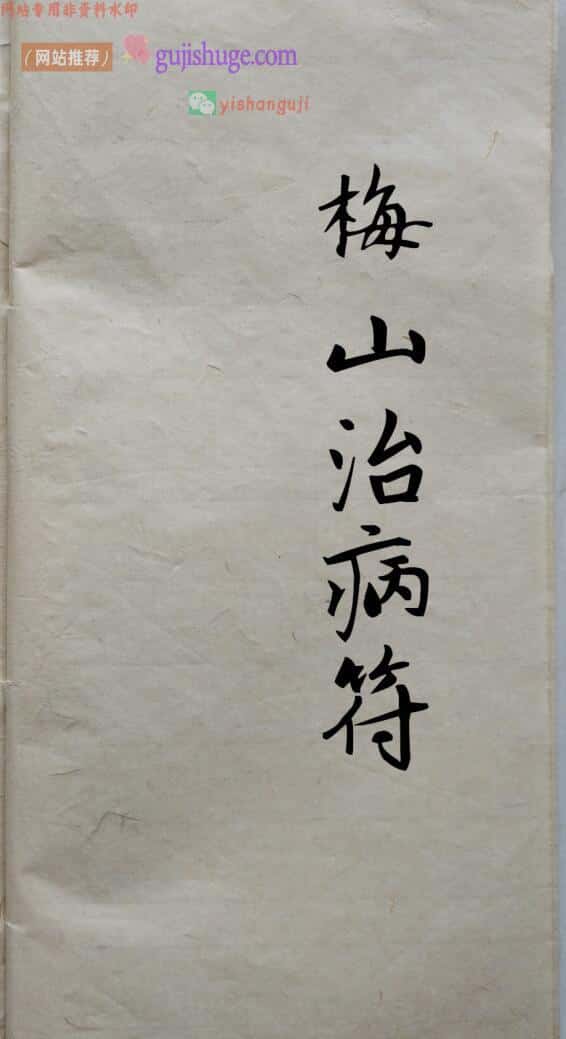 网站专用非资料水印
（网站推荐） gujishuge.com
yishanguji
梅山治病符